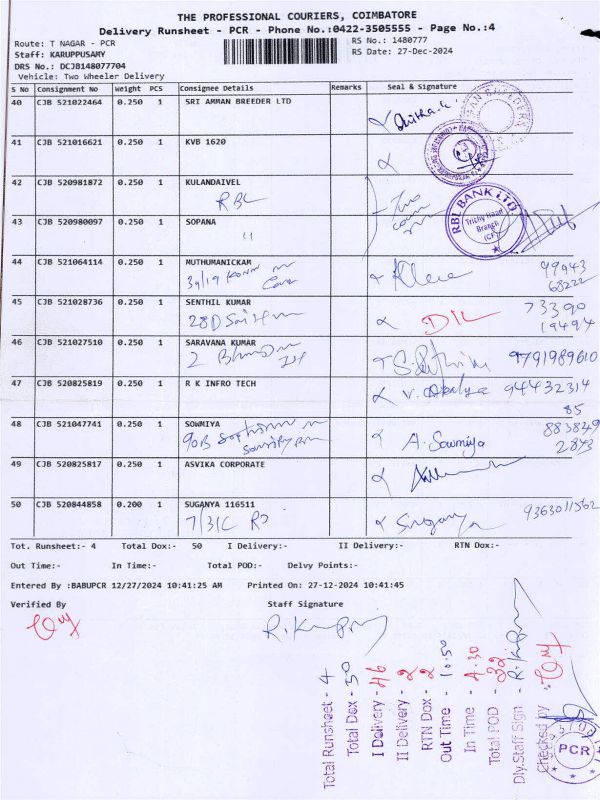 THE PROFESSIONAL COURIERS, COIMBATORE
Delivery Runsheet - PCR - Phone No.:0422-3505555 - Page No.:4
Route: T NAGAR - PCR
RS No.: 1480777
Staff: KARUPPUSAMY
RS Date: 27-Dec-2024
DRS No.: DCJB148077704
Vehicle: Two Wheeler Delivery
S No Consignment No Weight PCS Consignee Details Remarks Seal & Signature
40 CJB 521022464 0.250 1 SRI AMMAN BREEDER LTD
41 CJB 521016621 0.250 1 KVB 1620
42 CJB 520981872 0.250 1 KULANDAIVEL
RBL
RBL BANK LTD
Trichy Road
Branch
43 CJB 520980097 0.250 1 SOPANA
"
44 CJB 521064114 0.250 1 MUTHUMANICKAM
39/19
99943
68222
45 CJB 521028736 0.250 1 SENTHIL KUMAR
28D
DIL
73390
19494
46 CJB 521027510 0.250 1 SARAVANA KUMAR
2
9791989610
47 CJB 520825819 0.250 1 R K INFRO TECH
94432314
85
48 CJB 521047741 0.250 1 SOWMIYA
90B
A. Sowmiya
883849
2843
49 CJB 520825817 0.250 1 ASVIKA CORPORATE
50 CJB 520844858 0.200 1 SUGANYA 116511
7/31C
Suganya
9363011562
Tot. Runsheet:- 4 Total Dox:- 50 I Delivery:- II Delivery:- RTN Dox:-
Out Time:- In Time:- Total POD:- Delvy Points:-
Entered By :BABUPCR 12/27/2024 10:41:25 AM Printed On: 27-12-2024 10:41:45
Verified By Staff Signature
Total Runsheet - 4
Total Dox - 50
I Delivery - 46
II Delivery - 2
RTN Dox - 2
Out Time - 10:50
In Time - 4.30
Total POD - 32
Dly.Staff Sign -
Checked by :
PCR